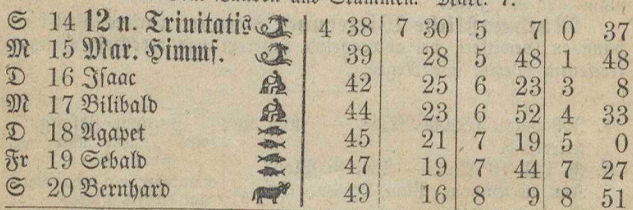 S 14 12 n. Trinitatis 4 38 7 30 5 7 0 37
M 15 Mar. Himmf. 39 28 5 48 1 48
D 16 Isaac 42 25 6 23 3 8
M 17 Bilibald 44 23 6 52 4 33
D 18 Agapet 45 21 7 19 5 0
Fr 19 Sebald 47 19 7 44 7 27
S 20 Bernhard 49 16 8 9 8 51